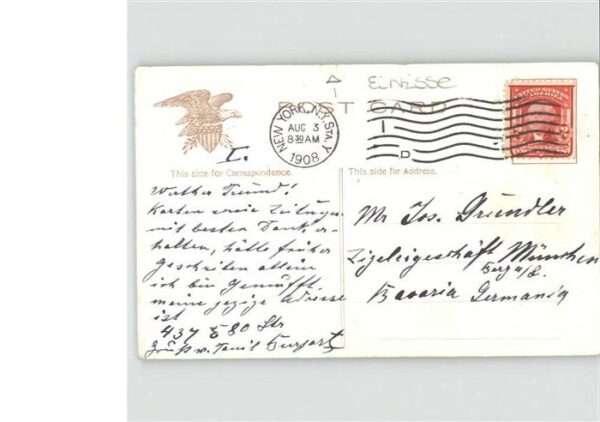 EINISSE
POST CARD
NEW YORK, N.Y. STA. Y
AUG 3
8 30 AM
1908
D
UNITED STATES
OF AMERICA
I.
This side for Correspondence.
This side for Address.
Werther Freund!
Karten sowie Zeitungen
mit besten Dank er-
halten, hätte früher
Geschrieben allein
ich bin
meine jezige Adresse
ist
437 E 80 Str
Gruß v.
Mr Jos. Gründler
Zigeleigeschäft München
Berg a/L.
Bavaria Germany